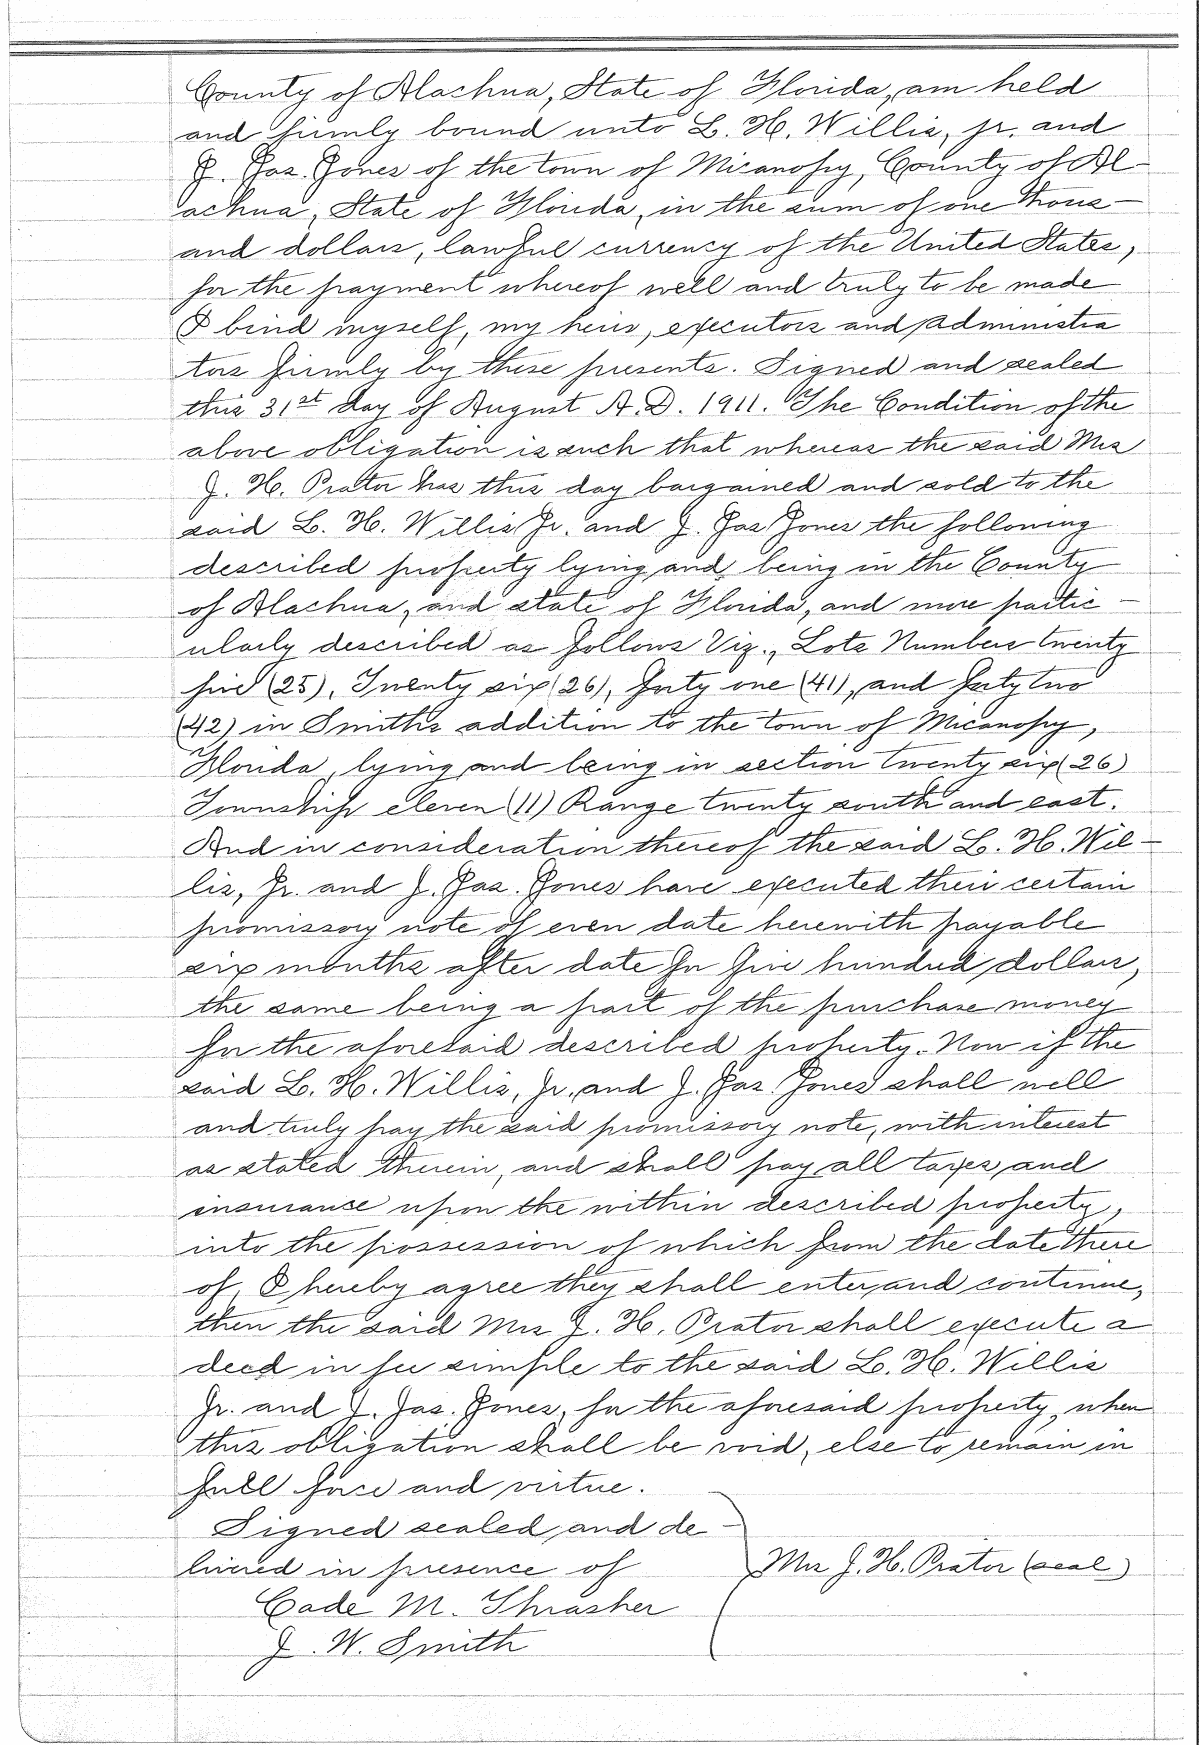 County of Alachua, State of Florida, am held
and firmly bound unto L. H. Willis, jr. and
J. Jas. Jones of the town of Micanopy, County of Al-
achua, State of Florida, in the sum of one thous-
and dollars, lawful currency of the United States,
for the payment whereof well and truly to be made
I bind myself, my heirs, executors and administra
tors firmly by these presents. Signed and sealed
this 31st day of August A.D. 1911. The Condition of the
above obligation is such that whereas the said Mrs
J. H. Prator has this day bargained and sold to the
said L. H. Willis Jr. and J. Jas Jones the following
described property lying and being in the County
of Alachua, and state of Florida, and more partic-
ularly described as follows Viz., Lots Numbers twenty
five (25), Twenty six (26), forty one (41), and forty two
(42) in Smiths addition to the town of Micanopy,
Florida, lying and being in section twenty six (26)
Township eleven (11) Range twenty south and east.
And in consideration thereof the said L. H. Wil-
lis, Jr. and J. Jas. Jones have executed their certain
promissory note of even date herewith payable
six months after date for five hundred dollars,
the same being a part of the purchase money
for the aforesaid described property. Now if the
said L. H. Willis, Jr. and J. Jas. Jones shall well
and truly pay the said promissory note, with interest
as stated therein, and shall pay all taxes and
insurance upon the within described property,
into the possession of which from the date there
of, I hereby agree they shall enter and continue,
then the said Mrs J. H. Prator shall execute a
deed in fee simple to the said L. H. Willis
Jr. and J. Jas. Jones, for the aforesaid property, when
this obligation shall be void, else to remain in
full force and virtue.
Signed sealed and de-
livered in presence of
Mrs J. H. Prator (seal)
Cade M. Thrasher
J. W. Smith